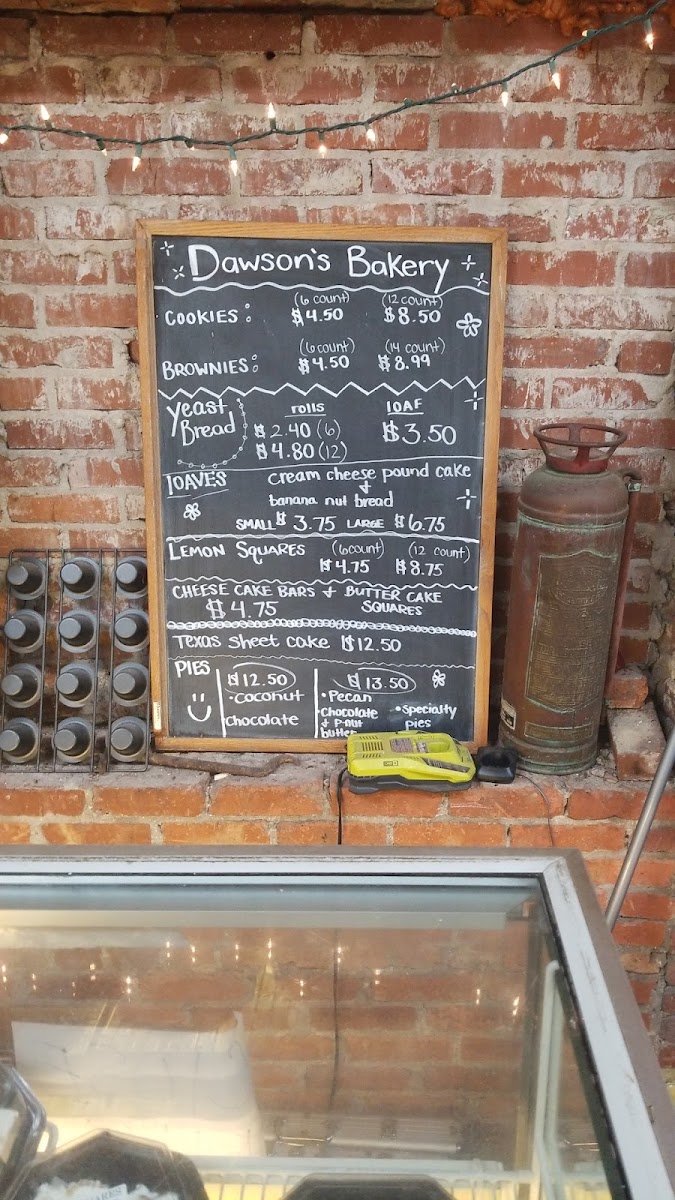 Dawson's Bakery
(6 count) (12 count)
COOKIES: $4.50 $8.50
(6 count) (14 count)
BROWNIES: $4.50 $8.99
Yeast Bread rolls LOAF
$2.40 (6) $3.50
$4.80 (12)
LOAVES cream cheese pound cake
+
banana nut bread
SMALL $3.75 LARGE $6.75
LEMON SQUARES (6 count) (12 count)
$4.75 $8.75
CHEESE CAKE BARS + BUTTER CAKE
$4.75 SQUARES
Texas sheet cake $12.50
PIES $12.50 $13.50
•coconut •Pecan
chocolate •chocolate •specialty
+ P-nut pies
butter